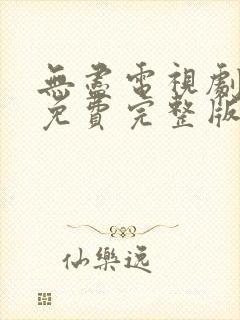 無盡電視劇
免費完整版
仙樂逸